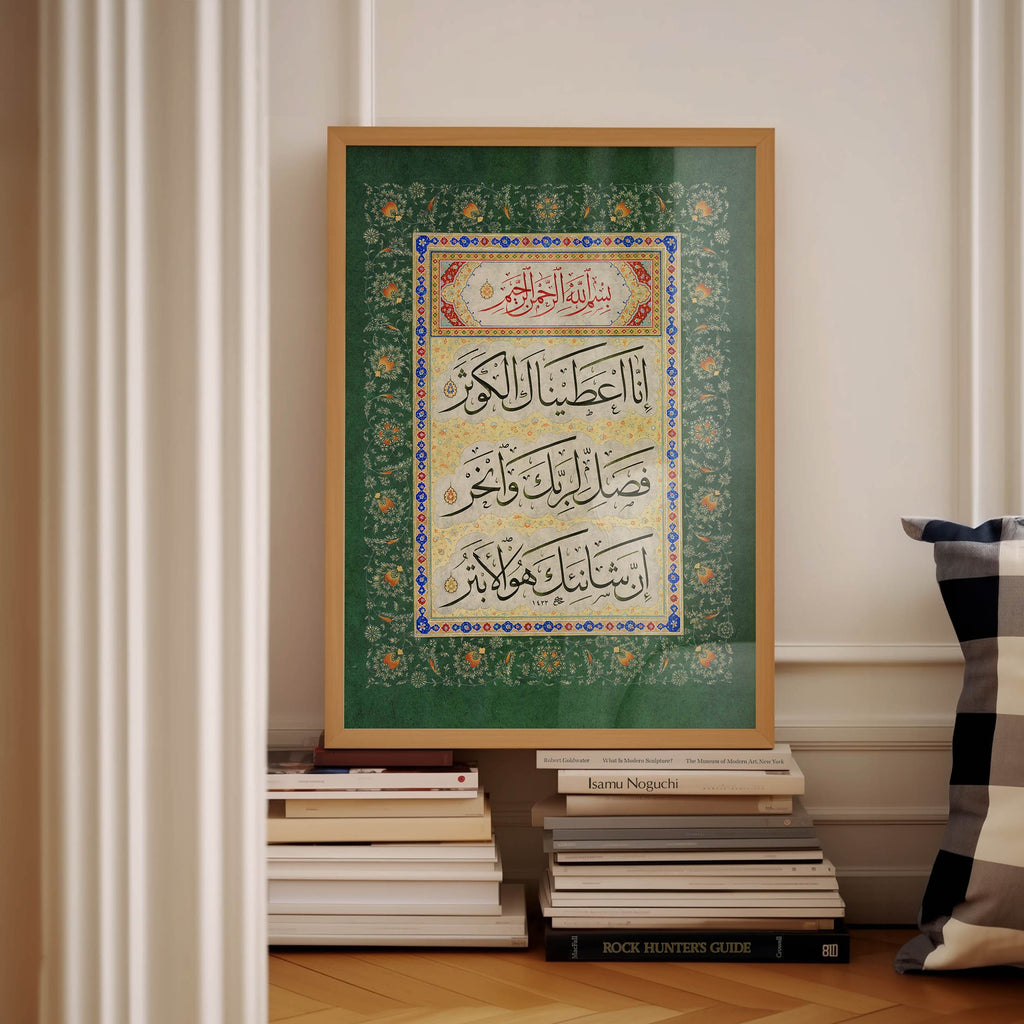 بِسْمِ اللّٰهِ الرَّحْمٰنِ الرَّحِيْمِ
اِنَّا اَعْطَيْنَاكَ الْكَوْثَرَ
فَصَلِّ لِرَبِّكَ وَانْحَرْ
اِنَّ شَانِئَكَ هُوَ الْاَبْتَرُ
١٤٢٢
Robert Goldwater What Is Modern Sculpture? The Museum of Modern Art, New York
Isamu Noguchi
MacFall ROCK HUNTER'S GUIDE Crowell